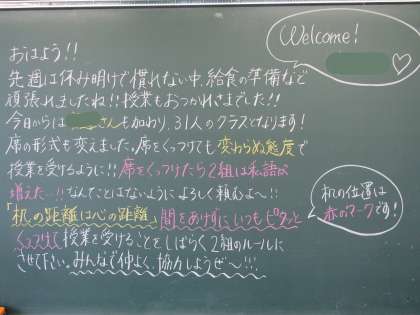 Welcome!
おはよう!!
先週は休み明けで慣れない中、給食の準備など
頑張れましたね!!授業もおつかれさまでした!!
今日からは さんも加わり、31人のクラスとなります!
席の形式も変えました。席をくっつけても変わらぬ態度で
授業を受けるように!!席をくっつけたら2組は私語が
増えた…!!なんてことはないようによろしく頼むよ〜!!
「机の距離は心の距離」間をあけずにいつもピタッと
くっつけて授業を受けることをしばらく2組のルールに
させて下さい。みんなで仲よく、協力しようぜ〜!!!
机の位置は
赤のマークです!